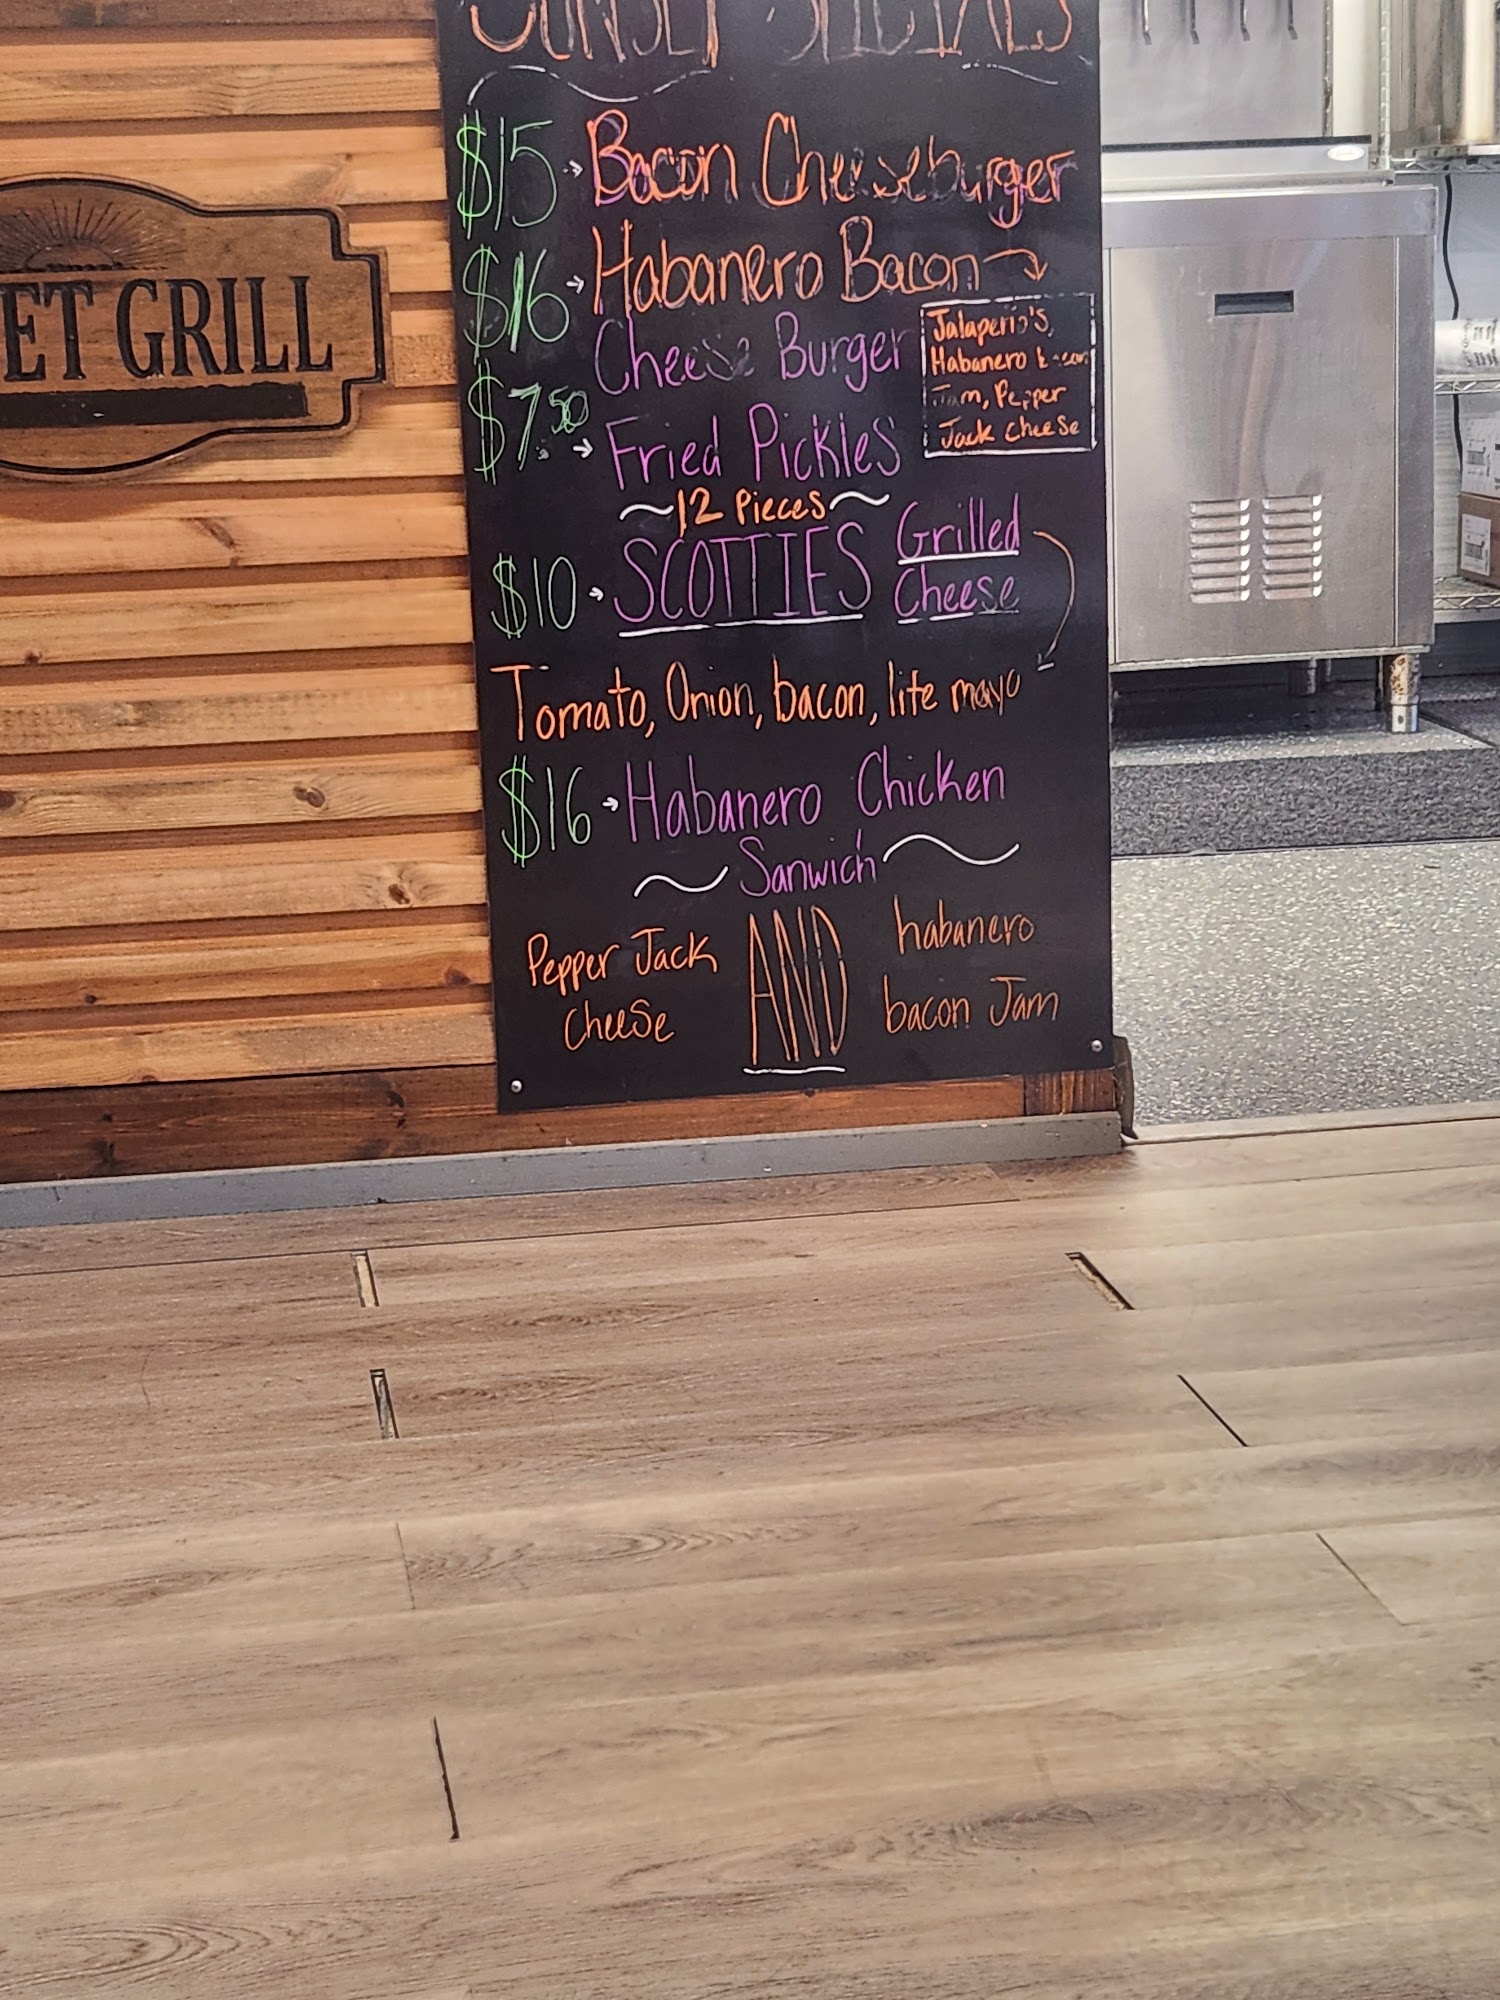 SUNSET SPECIALS
$15 → Bacon Cheeseburger
$16 → Habanero Bacon →
Cheese Burger
Jalapeno's,
Habanero Bacon
Jam, Pepper
Jack cheese
$7.50 → Fried Pickles
~12 Pieces~
$10 → SCOTTIES Grilled
Cheese
Tomato, Onion, bacon, lite mayo
$16 → Habanero Chicken
~ Sanwich ~
Pepper Jack
Cheese
AND
habanero
bacon Jam
ET GRILL